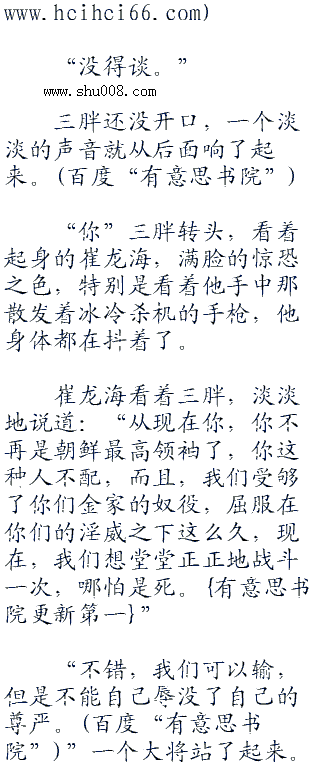 www.hcihci66.com)
“没得谈。”
www.shu008.com
三胖还没开口，一个淡
淡的声音就从后面响了起
来。(百度“有意思书院”)
“你”三胖转头，看着
起身的崔龙海，满脸的惊恐
之色，特别是看着他手中那
散发着冰冷杀机的手枪，他
身体都在抖着了。
崔龙海看着三胖，淡淡
地说道：“从现在你，你不
再是朝鲜最高领袖了，你这
种人不配，而且，我们受够
了你们金家的奴役，屈服在
你们的淫威之下这么久，现
在，我们想堂堂正正地战斗
一次，哪怕是死。{有意思书
院更新第一}”
“不错，我们可以输，
但是不能自己辱没了自己的
尊严。(百度“有意思书
院”)”一个大将站了起来。